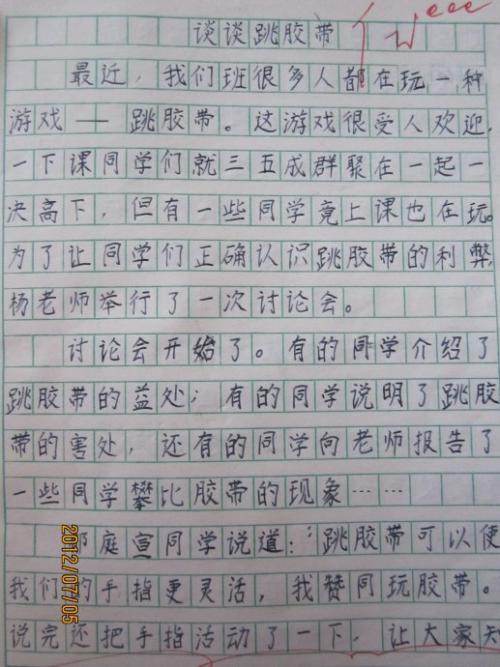 谈谈跳胶带
最近，我们班很多人都在玩一种
游戏——跳胶带。这游戏很受人欢迎，
一下课同学们就三五成群聚在一起一
决高下，但有一些同学竟上课也在玩。
为了让同学们正确认识跳胶带的利弊，
杨老师举行了一次讨论会。
讨论会开始了。有的同学介绍了
跳胶带的益处；有的同学说明了跳胶
带的害处，还有的同学向老师报告了
一些同学攀比胶带的现象……
庭宣同学说道：“跳胶带可以使
我们的手指更灵活，我赞同玩胶带。
说完还把手指活动了一下，让大家知
2012/07/05